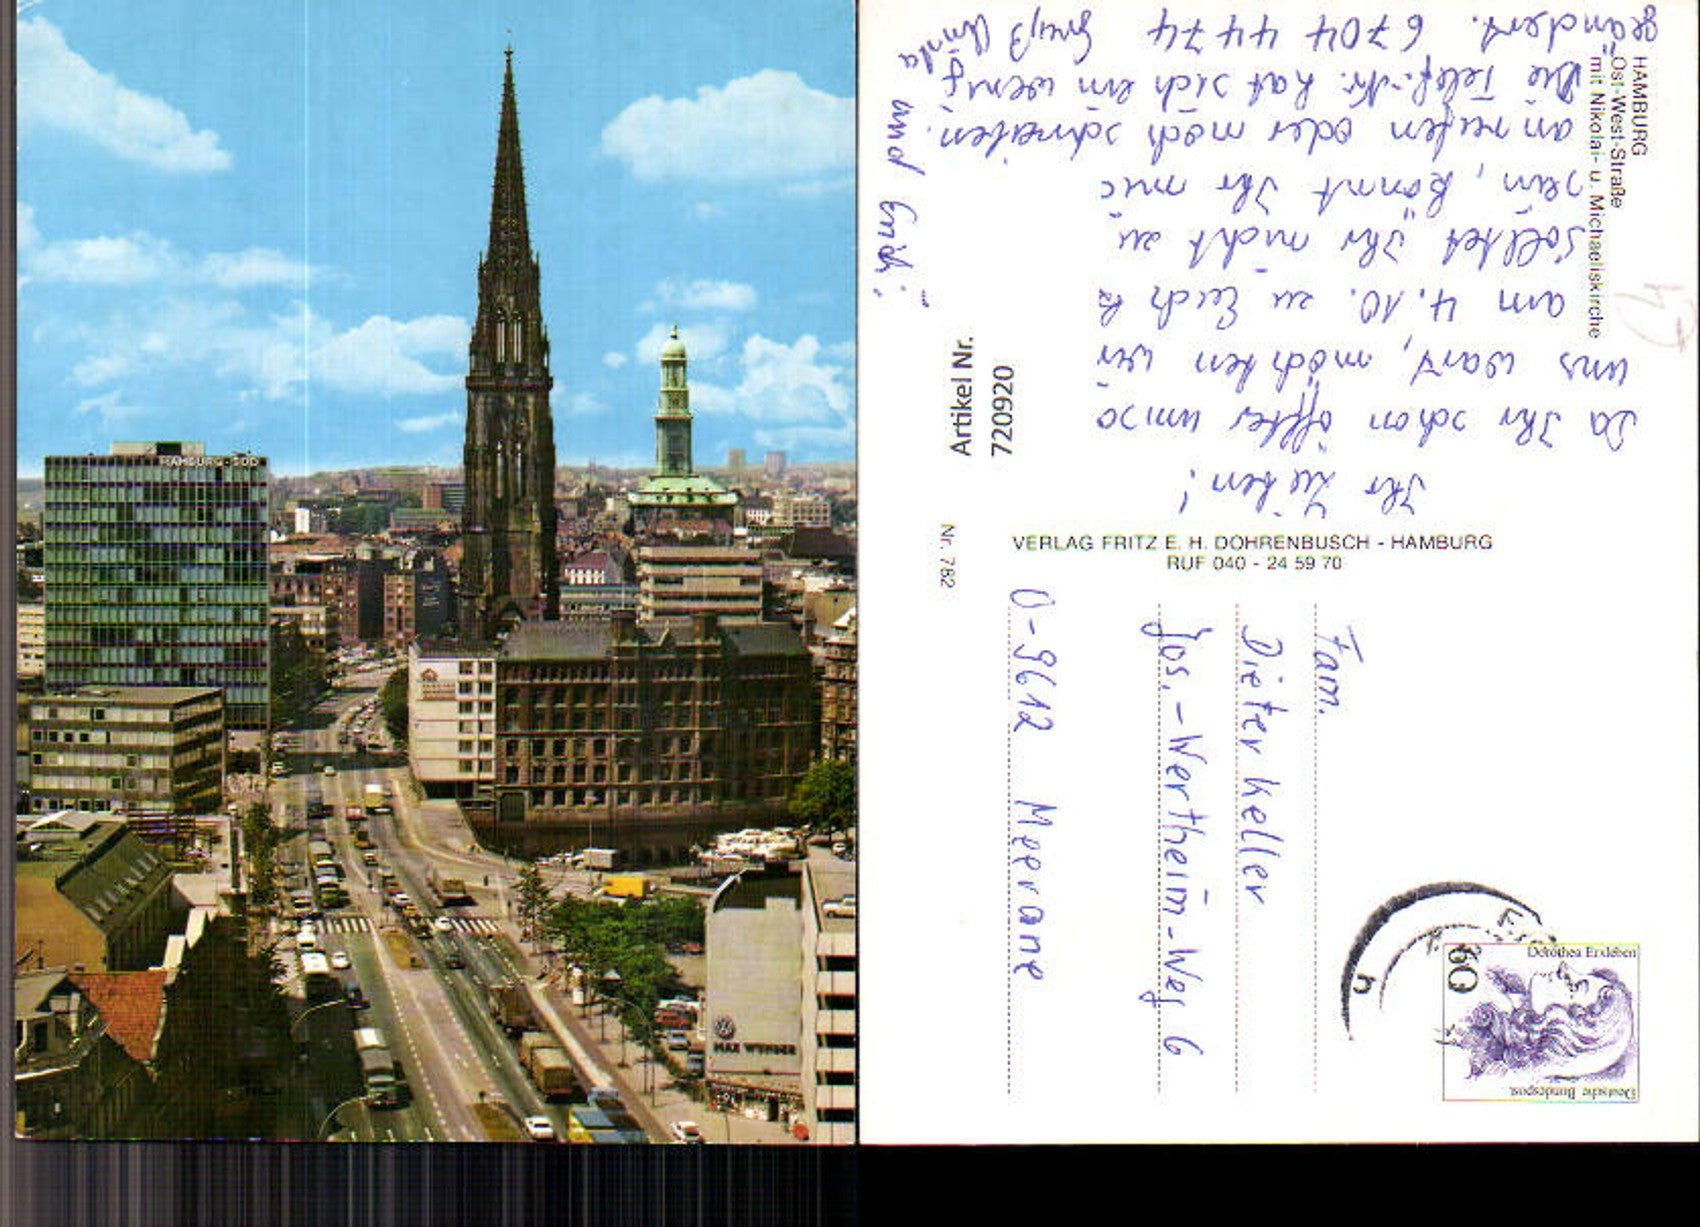 HAMBURG-SÜD
MAX WUNDER
HAMBURG
Ost-West-Straße
mit Nikolai- u. Michaeliskirche
Ihr Lieben!
Da Ihr schon öffter umso
uns ward, möchten wir
am 4.10. zu Euch
Solltet Ihr nicht zu
sein, könnt Ihr mic
an rufen oder mach schreiben.
Die Telef.-Nr. hat sich ein wenig
geändert. 6704 4474 Gruß
und Erich.
Artikel Nr.
720920
Nr. 782
VERLAG FRITZ E. H. DOHRENBUSCH - HAMBURG
RUF 040 - 24 59 70
Fam.
Dieter Keller
Jos.-Wertheim-Weg 6
O-9612 Meerane
Deutsche Bundespost
60
Dorothea Erxleben
h